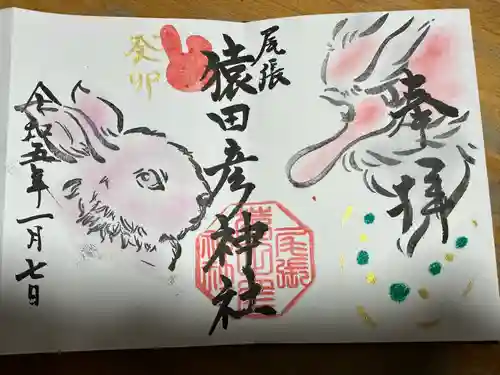 奉拝
尾張
猿田彦神社
癸卯
令和五年一月七日
尾張